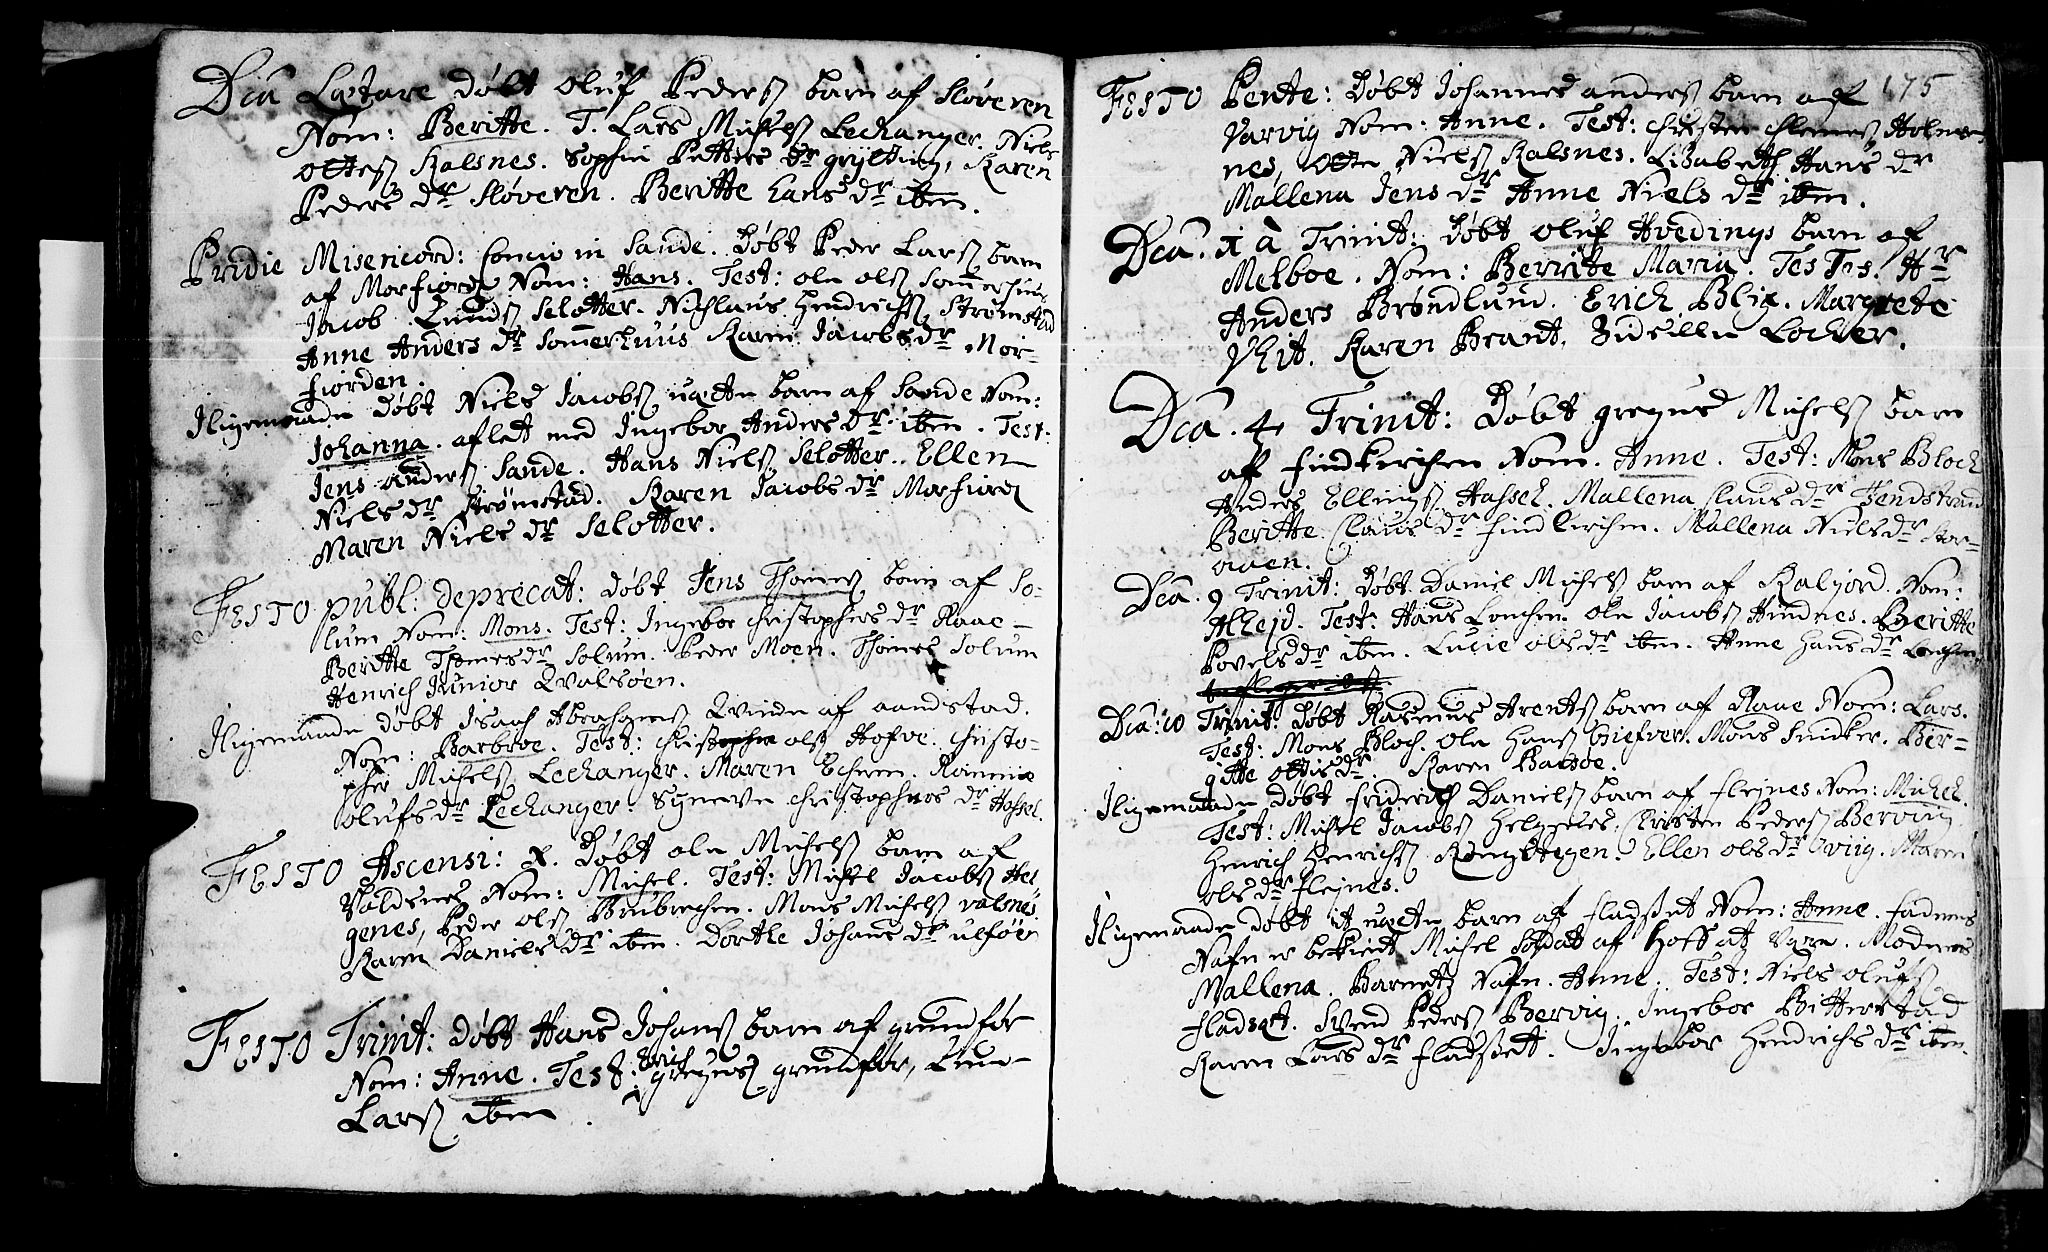 Dca Lætare døbt Oluf Peders barn af Sløveren
Nom: Beritte. T. Lars Michels Lechanger. Niels
Ottes Kalsnes. Sophie Petters dr grytting, Karen
Peders dr Sløveren. Beritte Lars dr ibm.
Pridie Misericord: Concio in Sande. Døbt Peder Lars barn
af Morfiord Nom: Hans. Test: ole ols Sommerhuus
Jacob Lunds Selotter. Nichlaus Hendrichs Strømstad
Anne Anders dr Sommerhuus Karen Jacobs dr Mor-
fiorden.
Iligemaade døbt Niels Jacobs uægte barn af Sande Nom:
Johanna. aflet med Ingebor Anders dr ibm. Test:
Jens anders Sande. Hans Niels Selotter. Ellen
Niels dr Strømstad. Karen Jacobs dr Morfiord
Maren Niels dr Selotter.
FESTO publ: deprecat: døbt Jens Thomes barn af So-
lum Nom: Mons. Test: Ingebor christophers dr Raae-
Beritte Thomes dr Solum. Peder Moen. Thomes Solum
Henrich Junior Qvalsøen.
Iligemaade døbt Isach Abrahams Qvinde af aandstad.
Nom: Barbroe. Test: ols Hofve. Christo-
pher Michels Lechanger. Maren Echren.
olufs dr Lechanger. Synneve christophers dr Hassel.
FESTO Ascensi: X. Døbt ole Michels barn af
Valdsnes Nom: Michel. Test: Michel Jacobs Hel
genes, Peder ols Brubrechen. Mons Michels valsnes
Karen Daniels dr ibm. Dorthe Johans dr ulføen
FESTO Trinit: døbt Hans Johans barn af grundfør
Nom: Anne. Test: Erich gregus grundfør, Lun-
Lars ibm.
FESTO Pente: Døbt Johannes anders barn af 175
Varvig Nom: Anne. Test: Christen Clemes Holmes
nes, Otte Niels Kalsnes. Lisabeth Hans dr
Mallena Jens dr Anne Niels dr ibm.
Dca. 1 à Trinit: Døbt Oluf Hvedings barn af
Melboe. Nom: Berrite Maria. Testes. Hr
Anders Brøndlund. Erich Blix. Margrete
Vhit. Karen Brant. Zidsille Locher.
Dca. 4 Trinit: Døbt gregus Michels barn
af findkirchen Nom. Anne. Test: Mons Bloch
Anders Ellings Hassel. Mallena Claus dr Sendstrand
Beritte Claus dr findkirchen. Mallena Niels dr Stor-
Dca. 9 Trinit: Døbt Daniel Michels barn af Kaljord Nom:
Alhejd. Test: Hans Lonchen. Ole Jacobs Hindnes. Beritte
Povels dr ibm. Lucie ols dr ibm. Anne Hans dr
Dca: 10 Trinit: Døbt Rasmus Arents barn af Raae Nom: Lars.
Test: Mons Bloch. Ole Hans Giefver. Mons Snicker. Ber-
gitte Ottis dr. Karen Barboe.
Iligemaade døbt friderich Daniels barn af flejnes Nom: Michel.
Test: Michel Jacobs Helgenes. Christen Peders Berviig
Henrich Henrichs Ringstagen. Ellen ols dr Viig. Maren
ols dr flejnes.
Iligemaade døbt it uægte barn af fladsæt Nom: Anne. fadrens
Nafn er bekiendt Michel Soldat af Moders
Mallena. Barnetz Nafn. Anne. Test: Niels olufs
fladsæt. Svend Peders Bervig. Ingebor Bitterstad
Karen Lars dr fladsæt. Ingebor Hendrichs dr ibm.